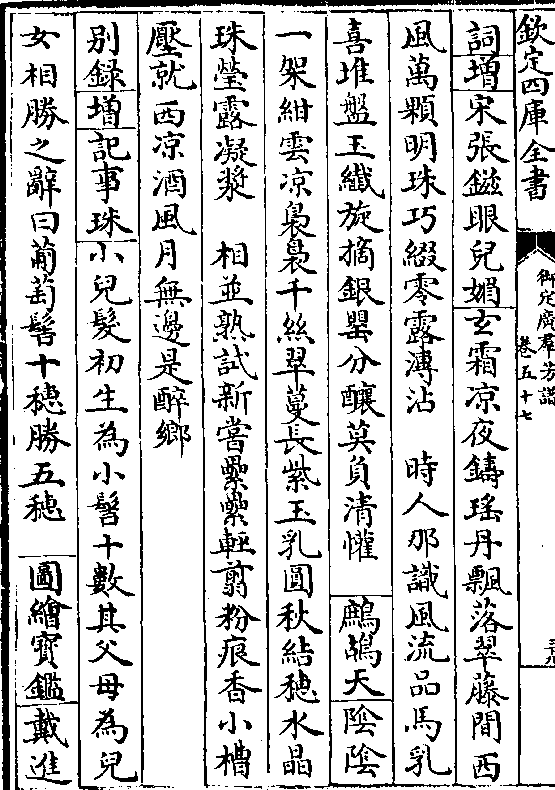 欽定四庫全書
御定廣羣芳譜
卷五十七
詞增宋張鎡眼兒媚玄霜凉夜鑄瑤丹飄落翠藤間西
風萬顆明珠巧綴零露漙沾　時人那識風流品馬乳
喜堆盤玉纖旋摘銀罌分釀莫負清懽　鷓鴣天陰陰
一架紺雲凉裊裊千絲翠蔓長紫玉乳圓秋結穗水晶
珠瑩露凝漿　相並熟試新嘗纍纍輕翦粉痕香小槽
壓就西凉酒風月無邊是醉鄉
別録增記事珠小兒髮初生為小髻十數其父母為兒
女相勝之辭曰葡萄髻十穗勝五穗　圖繪寶鑑戴進